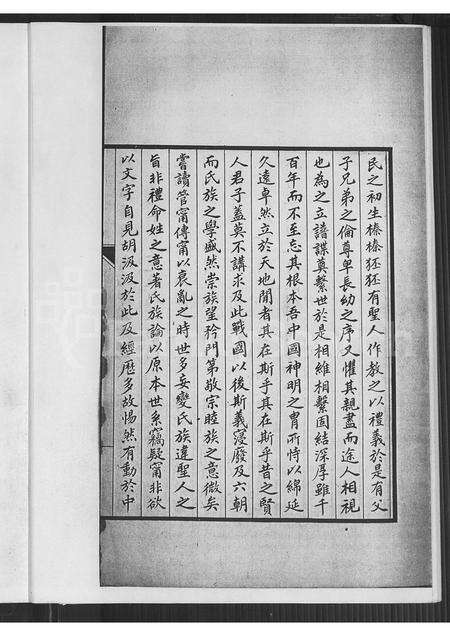 民之初生榛榛狉狉有聖人作教之以禮義於是有父
子兄弟之倫尊卑長幼之序又懼其親盡而途人相視
也為之立譜諜奠繫世於是相維相繫固結深厚雖千
百年而不至忘其根本吾中國神明之胄所恃以綿延
久遠卓然立於天地間者其在斯乎其在斯乎昔之賢
人君子蓋莫不講求及此戰國以後斯義寖廢及六朝
而氏族之學盛然崇族望矜門第敬宗睦族之意微矣
嘗讀管甯傳甯以衰亂之時世多妄變氏族違聖人之
旨非禮命姓之意著氏族論以原本世系竊疑甯非欲
以文字自見胡汲汲於此及經歷多故惕然有動於中